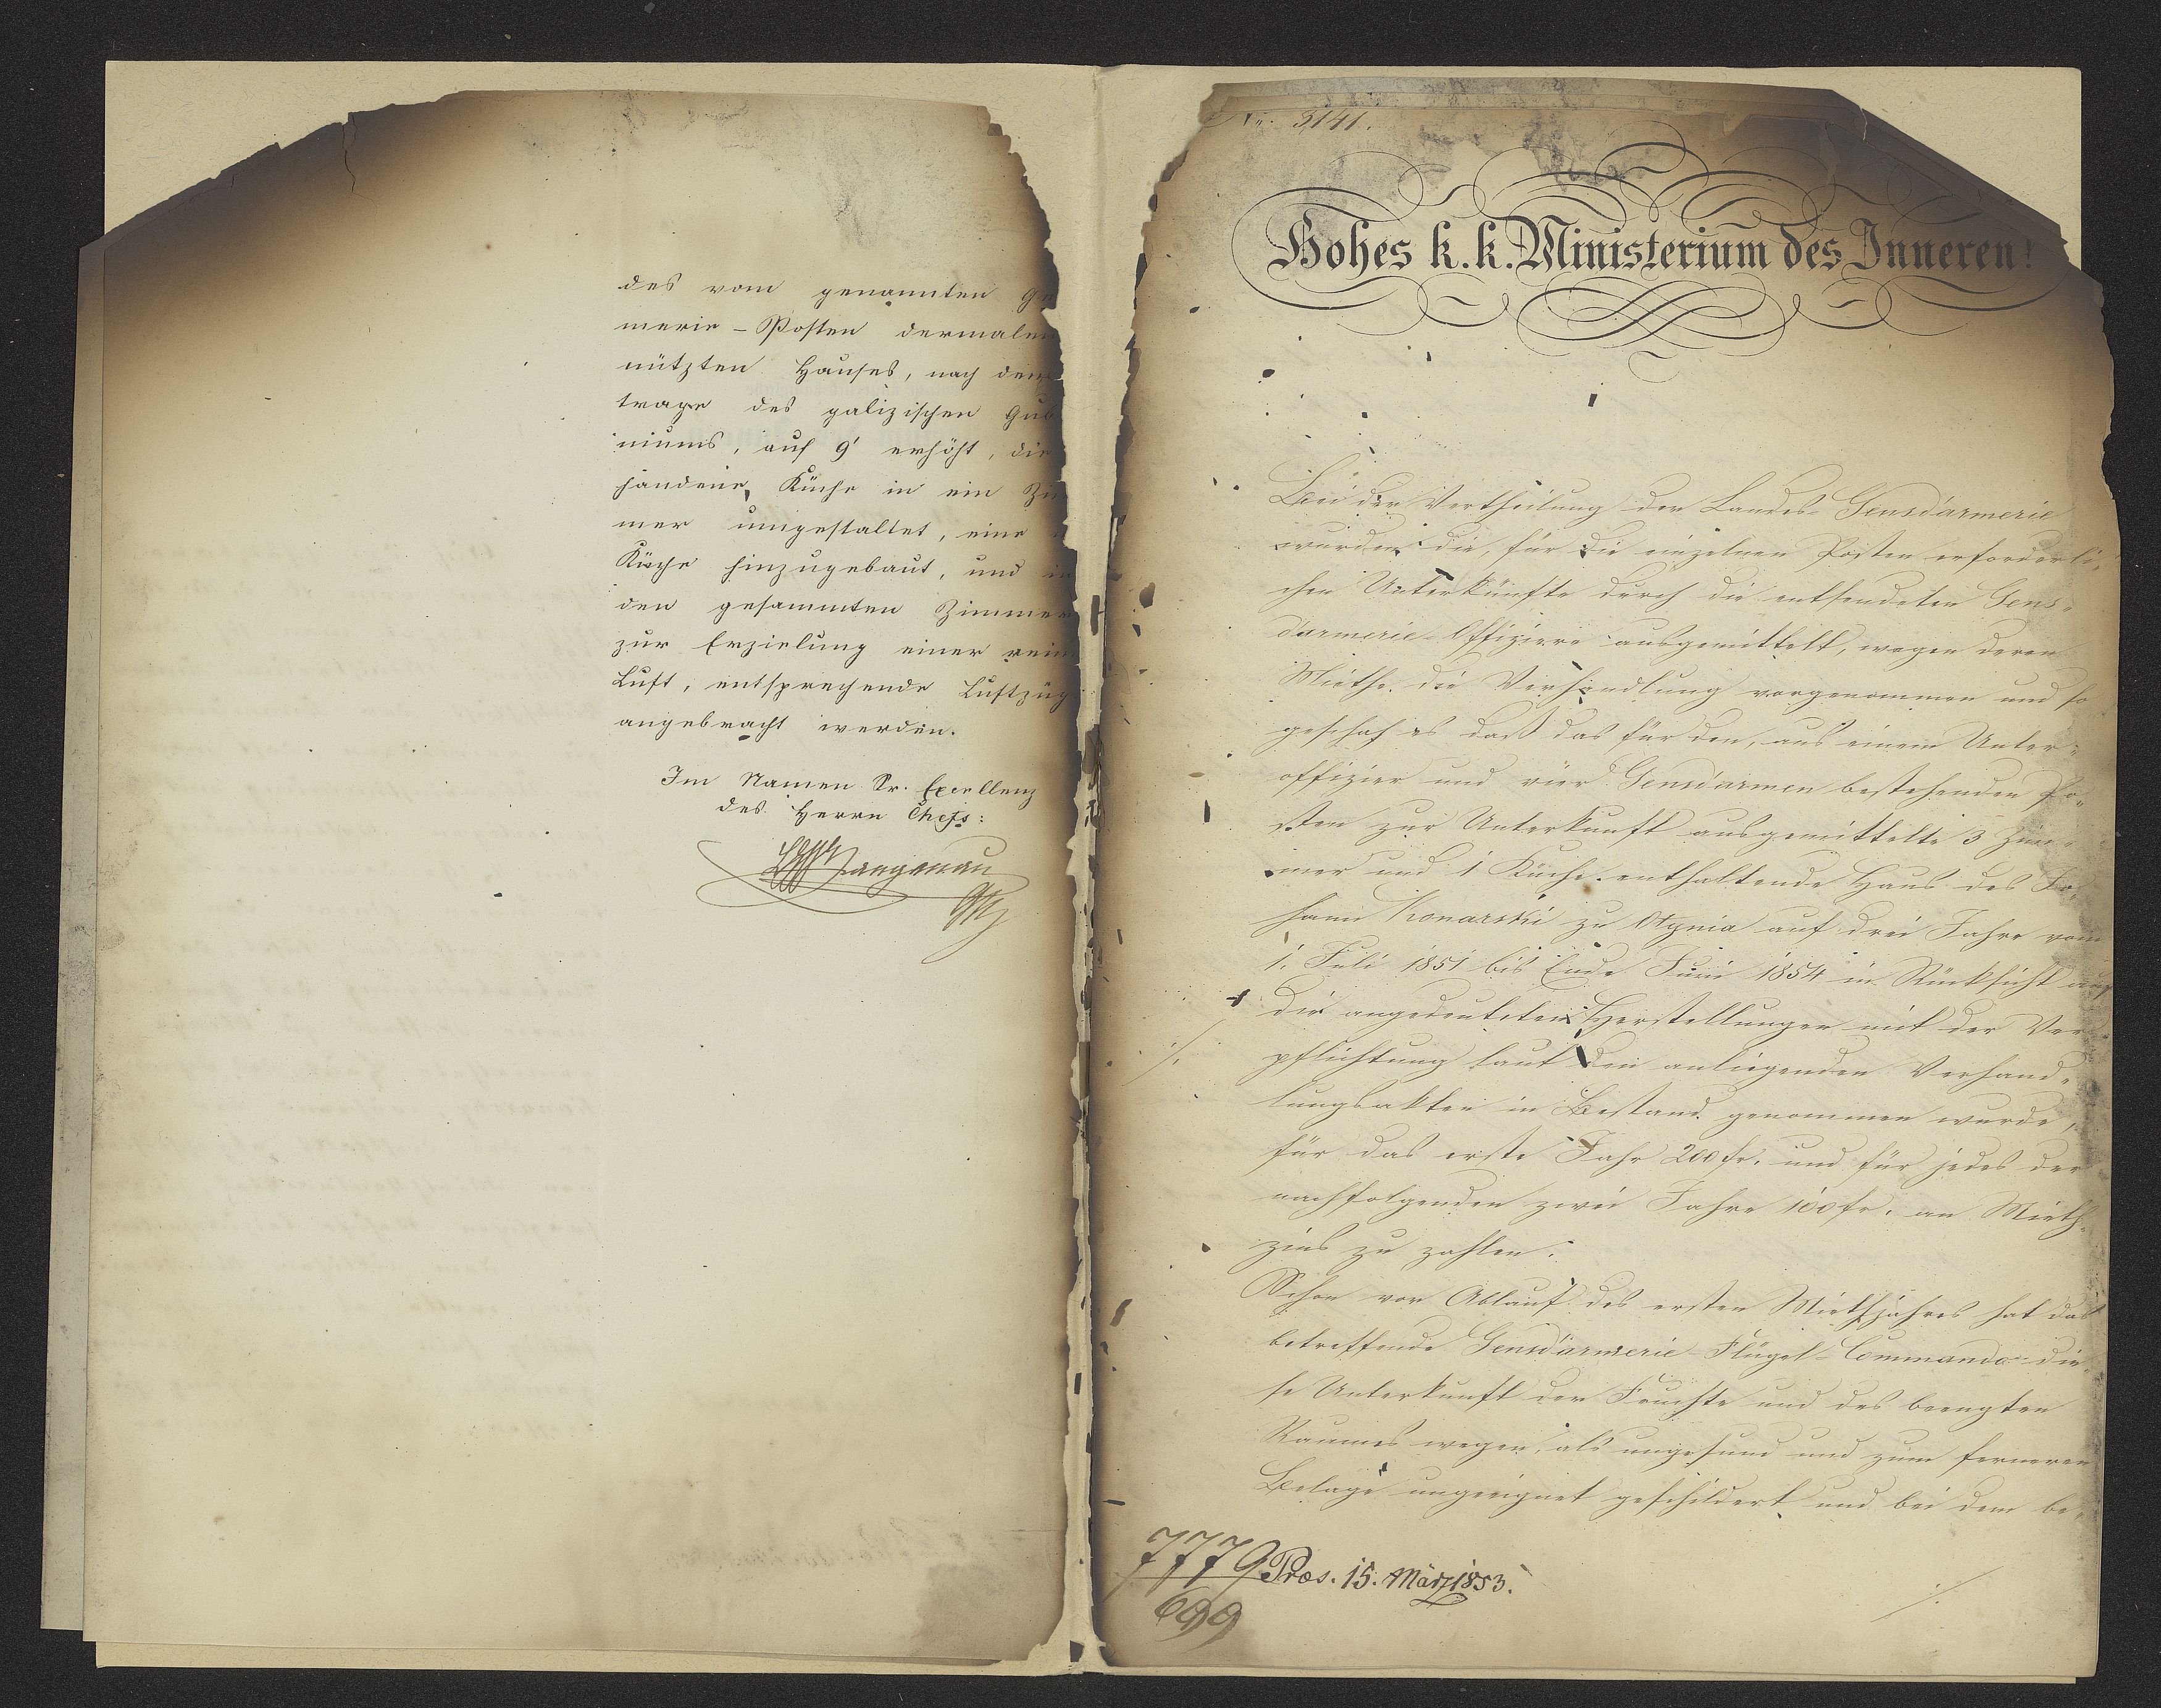 des vom genannten Ge
merie-Posten dermalen
nützten Hauses, nach dem
trage des galizischen Gub
niums, auf 9' erhöht, die
handene Küche in ein Zi
mer umgestaltet, eine
Küche hinzugebaut, und in
den gesammten Zimmern
zur Erzielung einer rein
Luft, entsprechende Luftzüg
angebracht werden.
Im Namen Sr. Excellenz
des Herrn Chefs:
Langenau
3141.
Hohes k. k. Ministerium des Inneren!
Bei der Vertheilung der Landes-Gensdarmerie
wurden die, für die einzelnen Posten erforderli-
chen Unterkünfte durch die entsendeten Gens-
darmerie-Offiziere ausgemittelt, wegen deren
Miethe die Verhandlung vorgenommen und so
geschah es daß das für den, aus einem Unter-
offizier und vier Gensdarmen bestehenden Po-
sten zur Unterkunft ausgemittelte 3 Zim-
mer und 1 Küche enthaltende Haus des Jo-
hann Konarski zu Otynia auf drei Jahre vom
1. Juli 1851 bis Ende Juni 1854 in Rücksicht auf
die angedeuteten Herstellungen mit der Ver-
./. pflichtung laut den anliegenden Verhand-
lungsakten in Bestand genommen wurde,
für das erste Jahr 200 fr. und für jedes der
nachfolgenden zwei Jahre 100 fr. an Mieth-
zins zu zahlen.
Schon vor Ablauf des ersten Miethjahres hat das
betreffende Gensdarmerie-Flügel-Commando die-
se Unterkunft der Feuchte und des beengten
Raumes wegen, als ungesund und zum ferneren
Belage ungeeignet geschildert und bei dem be-
7779 Praes. 15. März 1853.
699
./.